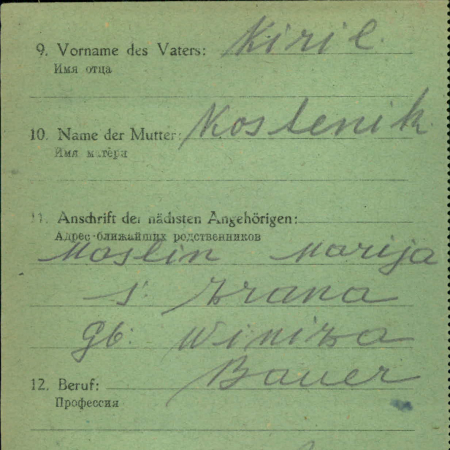 9. Vorname des Vaters: Kiril.
Имя отца
10. Name der Mutter: Kostenik
Имя матери
11. Anschrift der nächsten Angehörigen:
Адрес ближайших родственников
Maslin Marija
s. Hrana
gb. Winiza
12. Beruf: Bauer
Профессия